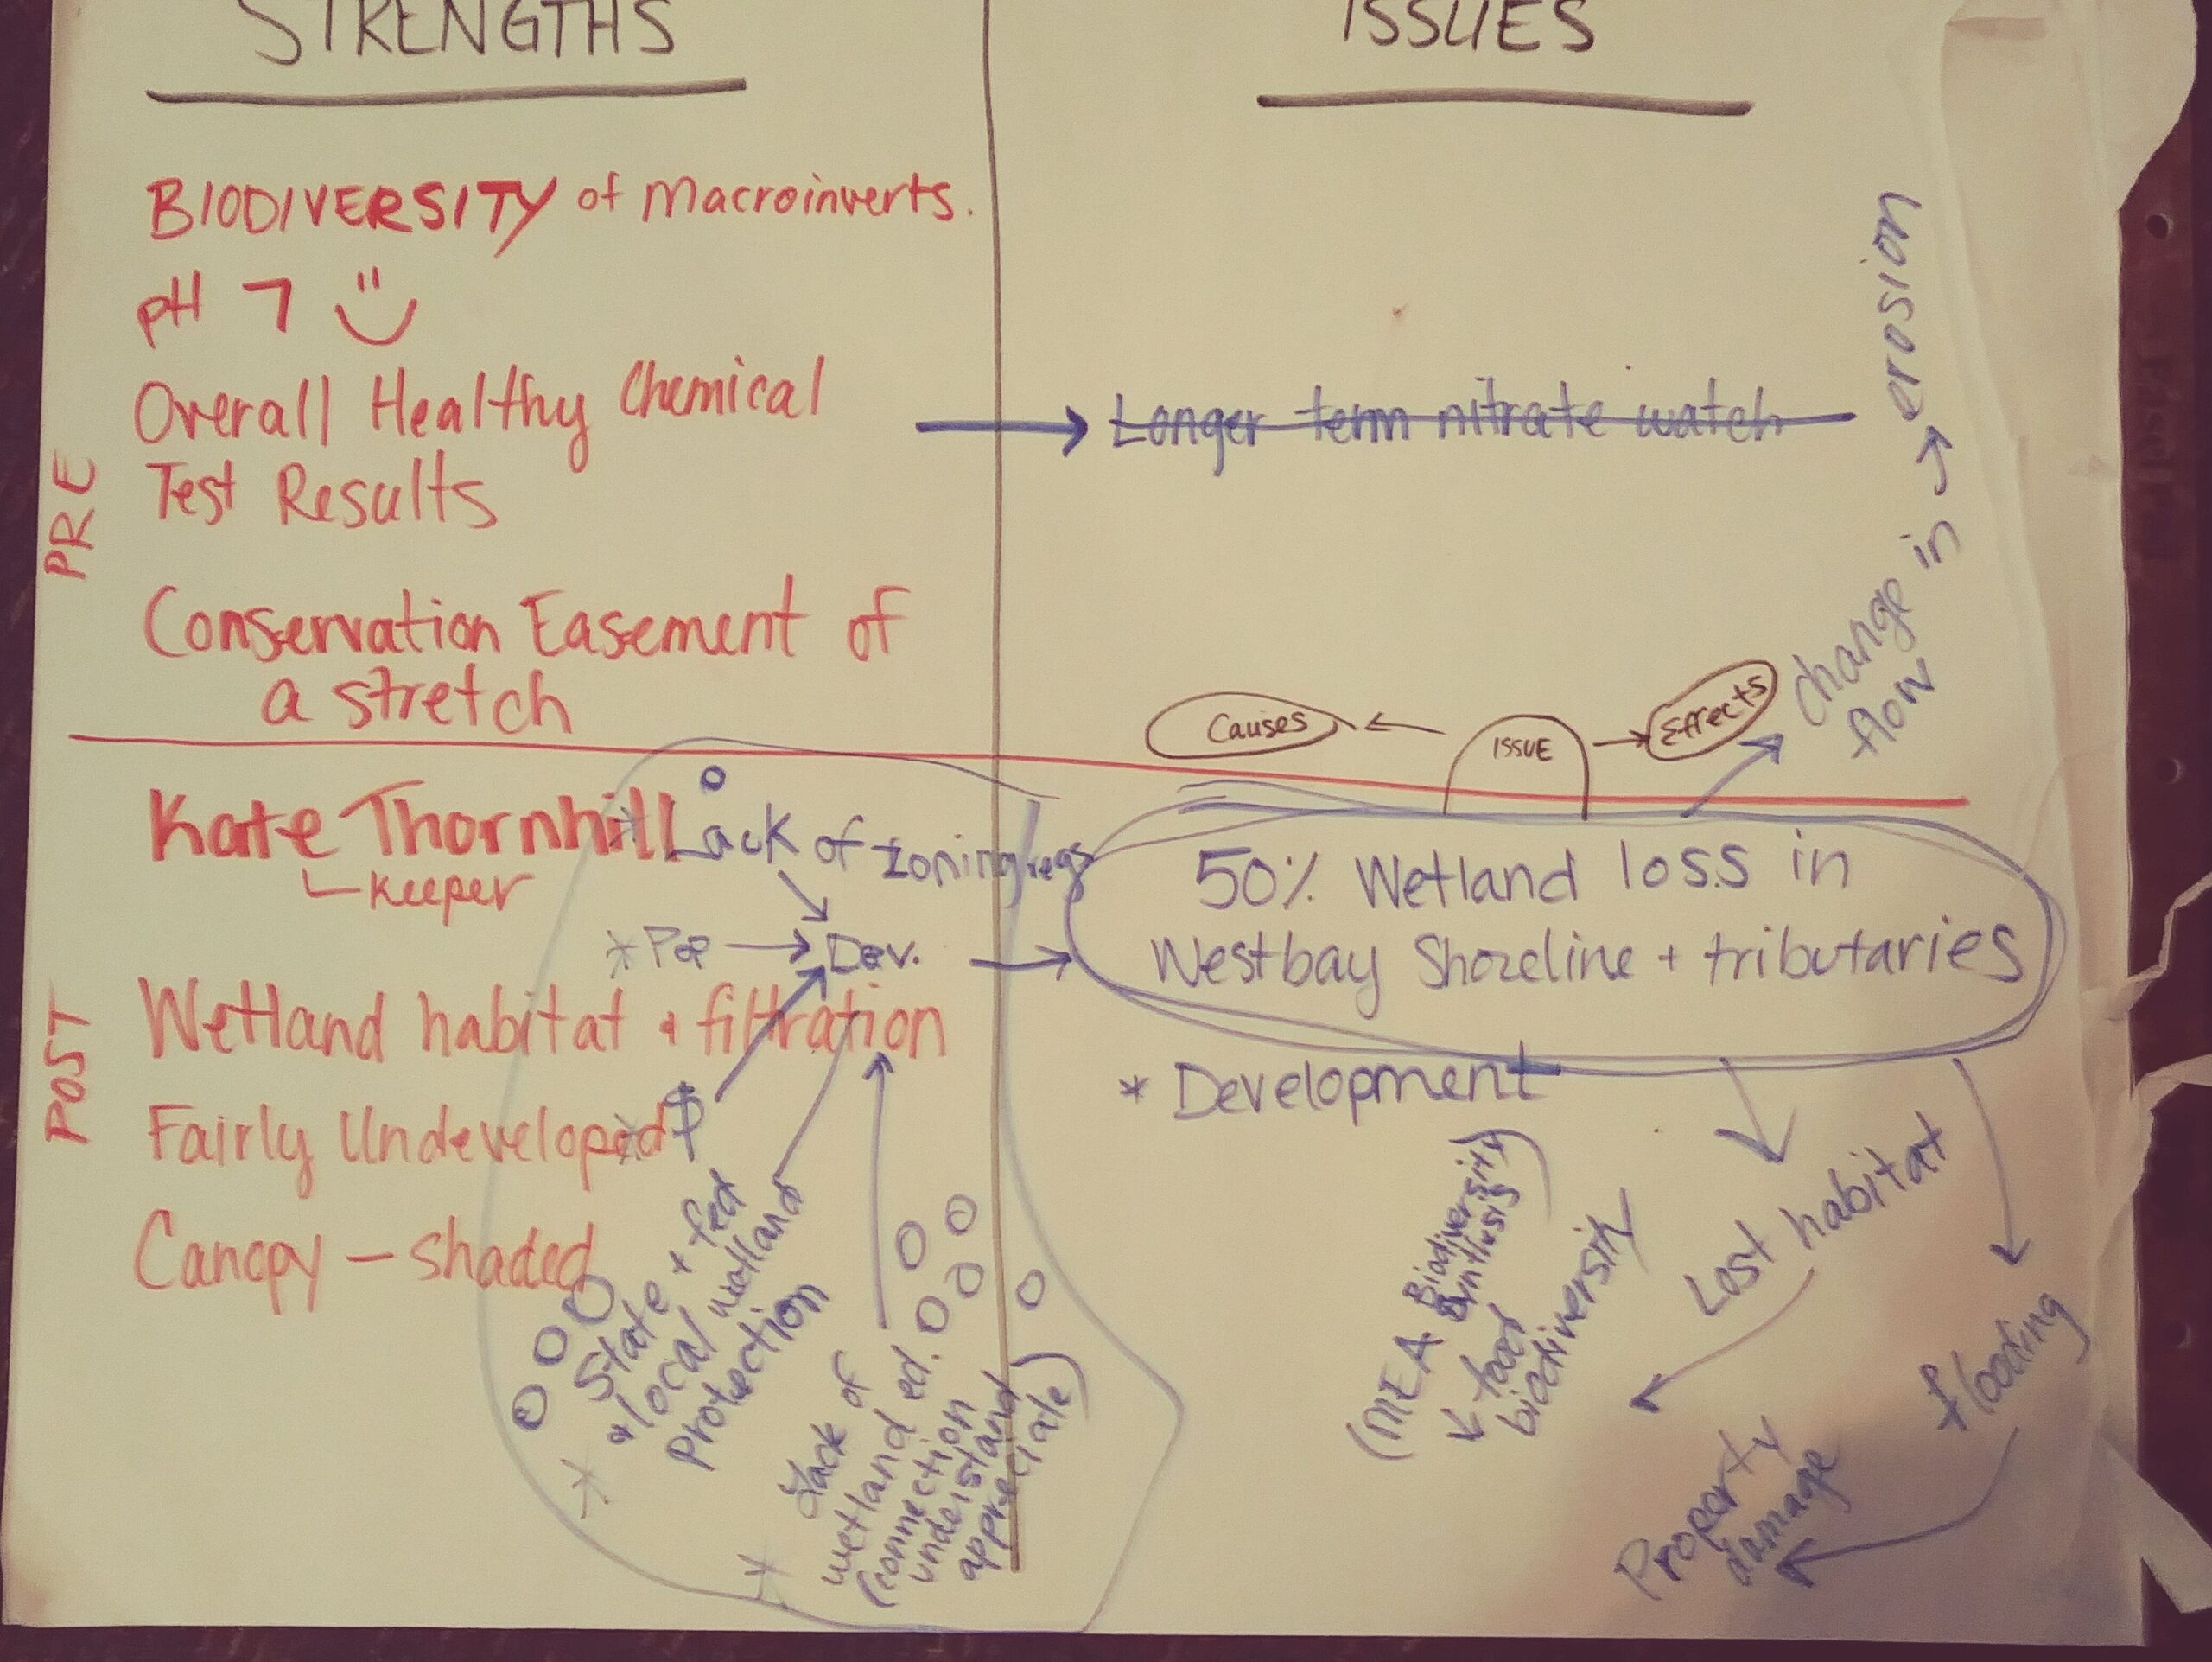 STRENGTHS
ISSUES
PRE
BIODIVERSITY of Macroinverts.
pH 7
Overall Healthy Chemical
Test Results
Conservation Easement of
a stretch
Longer term nitrate watch
erosion
change in
flow
Causes
ISSUE
Effects
POST
Kate Thornhill
Keeper
Wetland habitat + filtration
Fairly Undeveloped
Canopy - shaded
Lack of zoning regs
* Pop
Dev.
* $
State + fed
+ local wetland
Protection
*
Lack of
wetland ed.
(connection
understand
appreciate)
*
50% Wetland loss in
Westbay Shoreline + tributaries
* Development
(MEA Biodiversity
Synthesis)
food
biodiversity
Lost habitat
flooding
Property
damage